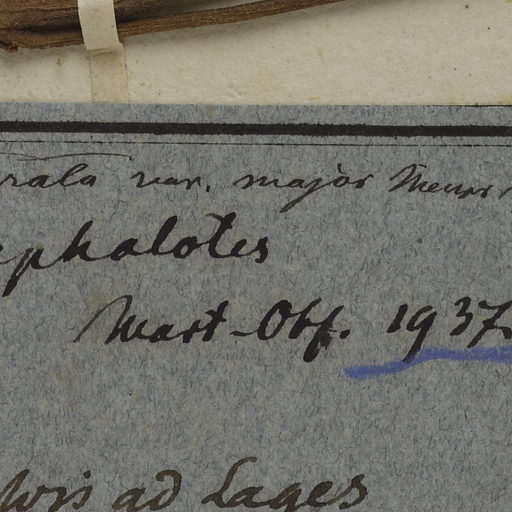 rala var. major Meissn
ephalotes
Mart-Obf. 1937.
lvis ad Lages